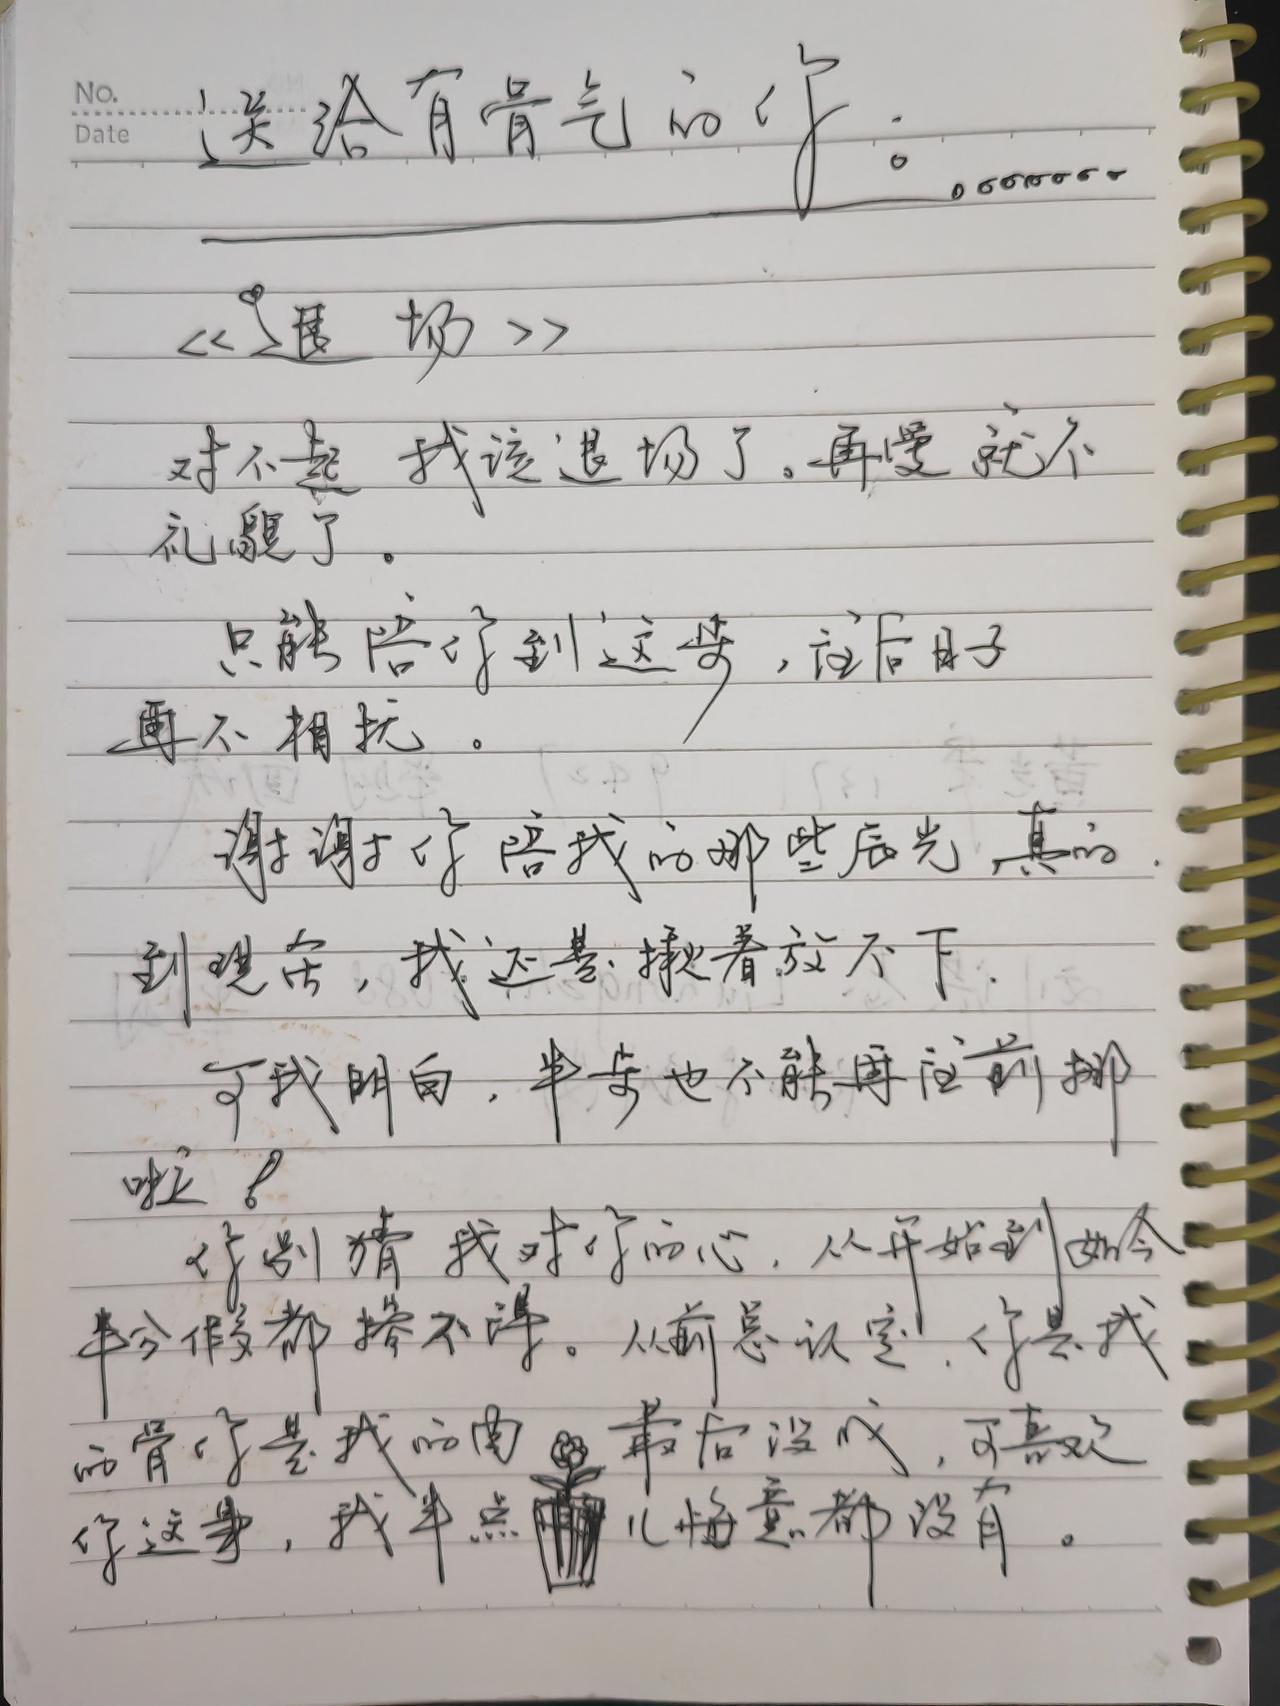 No.
Date
送给有骨气的你：
<<退场>>
对不起 我该退场了。再慢就不
礼貌了。
只能陪你到这步，往后日子
再不相扰。
谢谢你陪我的那些辰光 真的.
到现在，我还是揪着放不下.
可我明白，半步也不能再往前挪
啦！
你别猜我对你的心，从开始到如今
半分假都掺不得。从前总认定，你是我
的骨你是我的肉 最后没成，可喜欢
你这事，我半点儿悔意都没有。